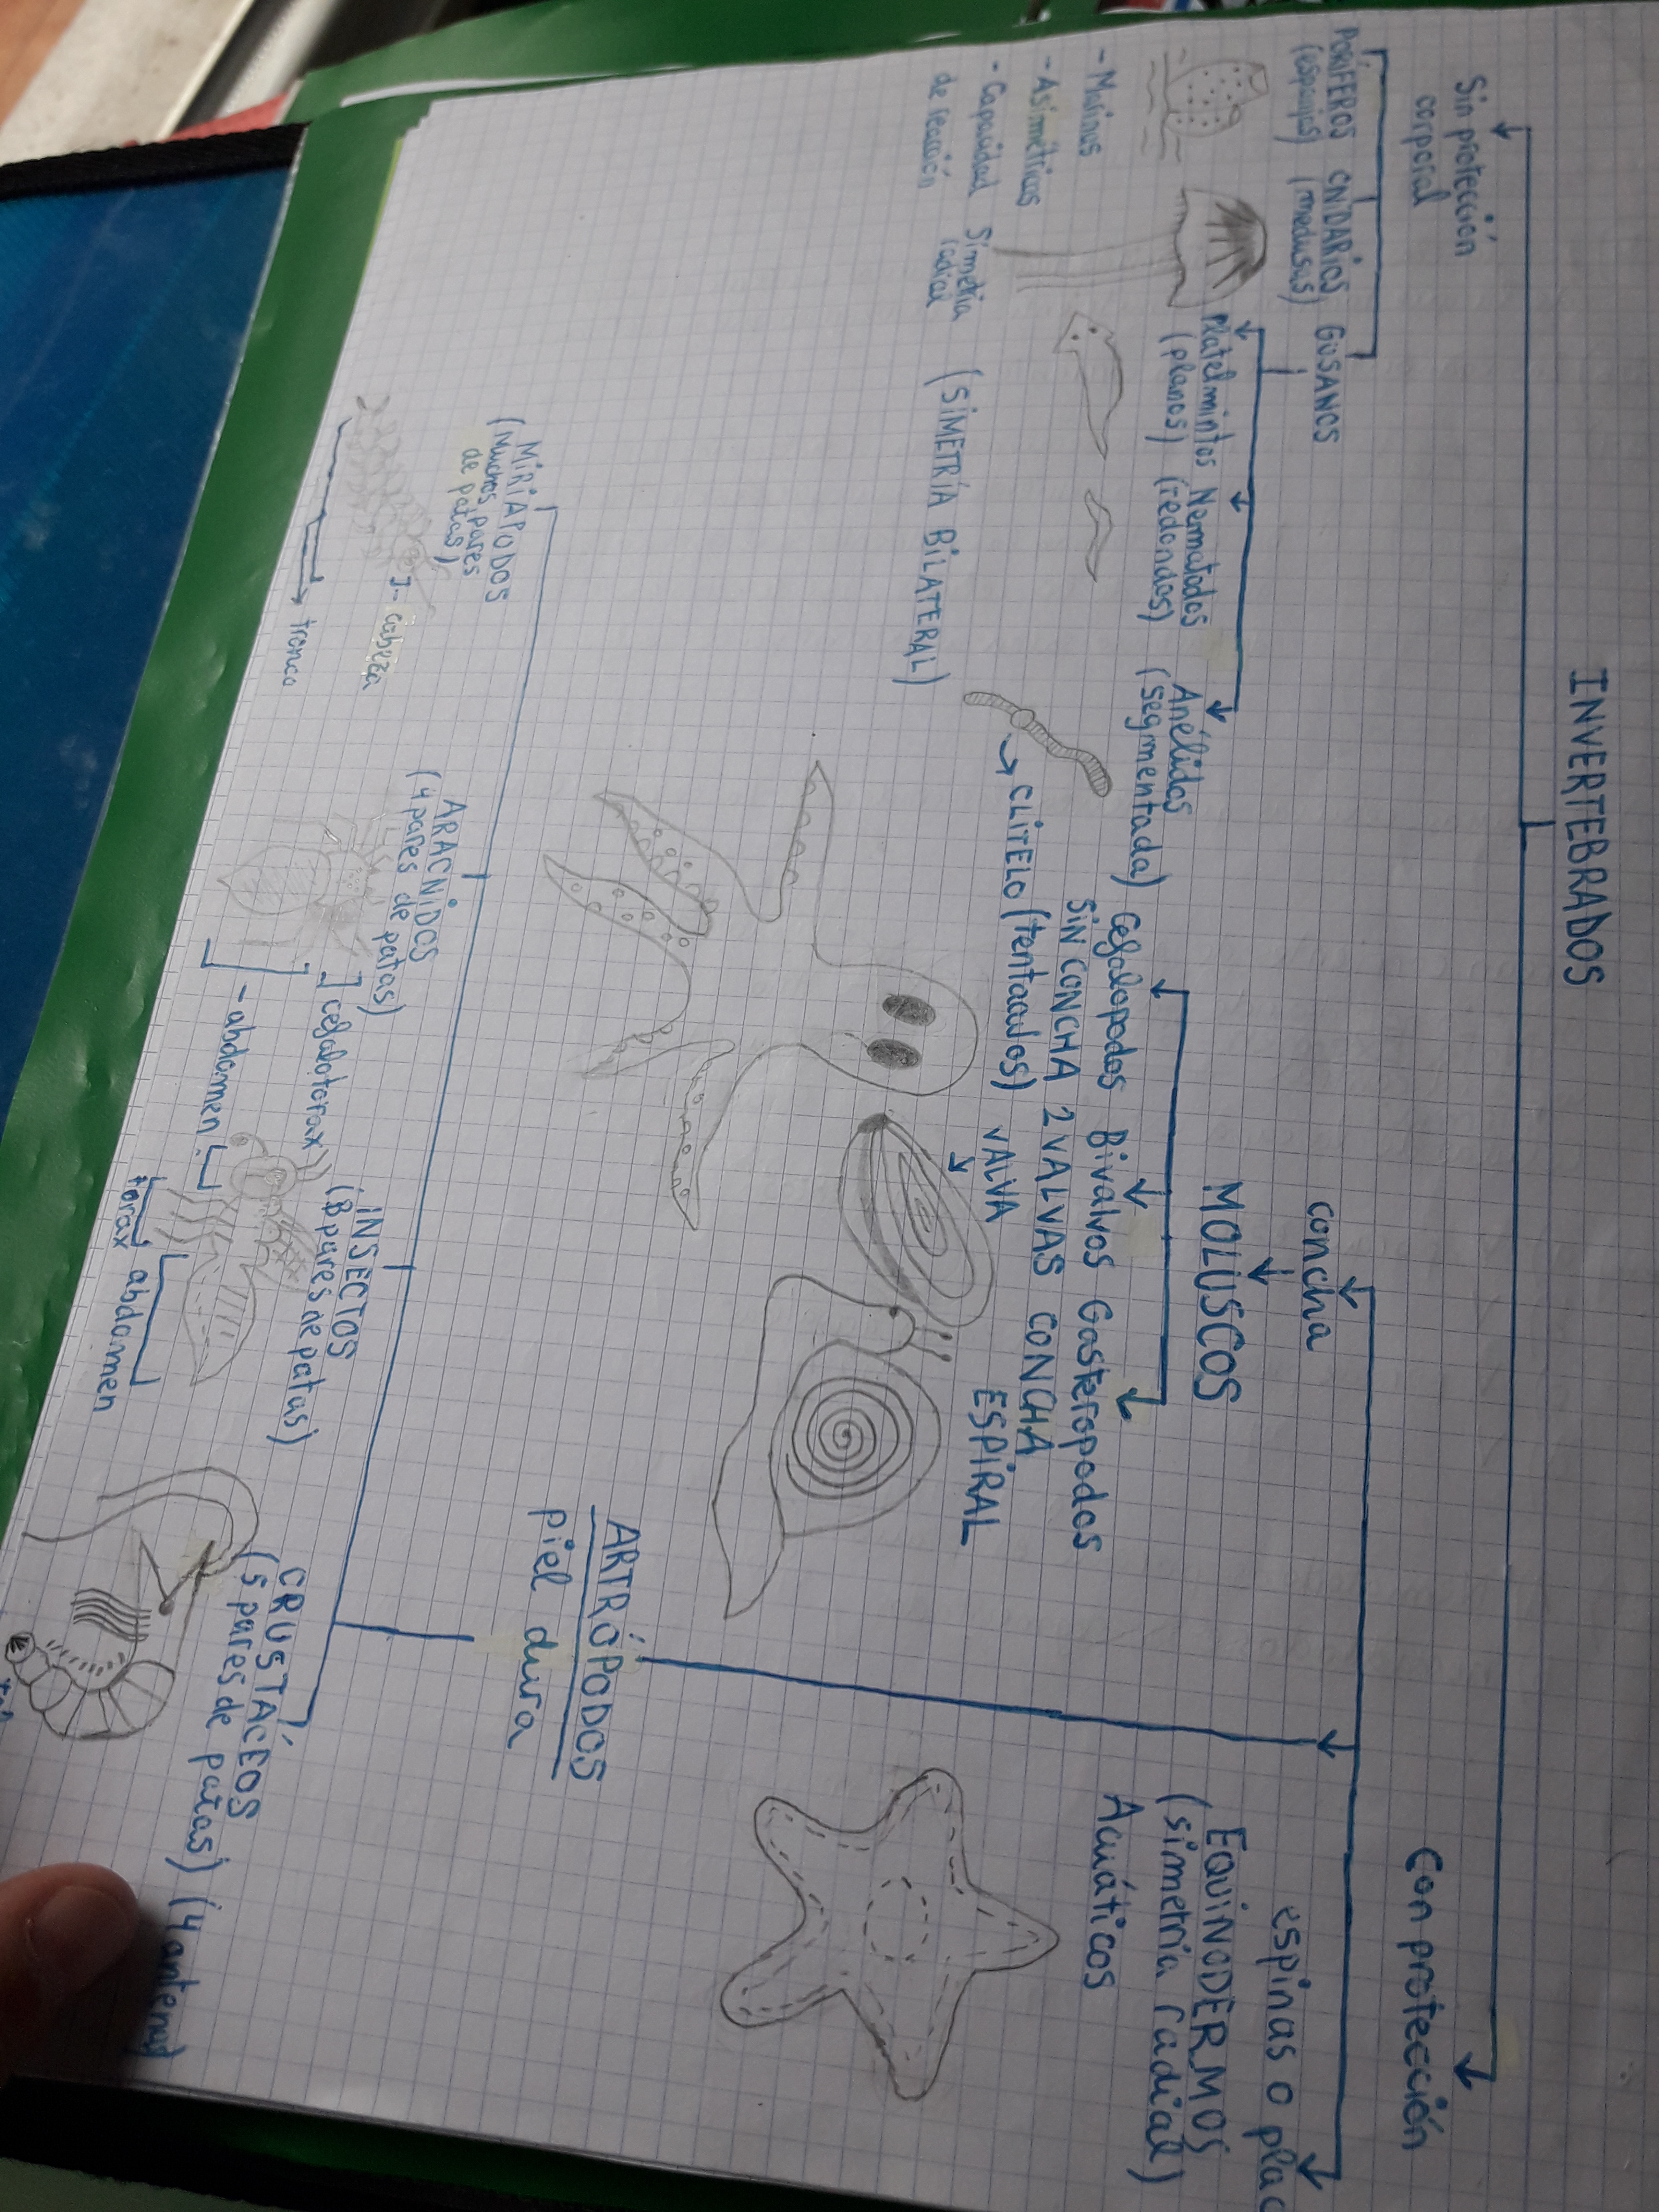 INVERTEBRADOS
Sin protección
corporal
Con protección
PORÍFEROS CNIDARIOS GUSANOS
(esponjas) (medusas)
Platelmintos Nematodos Anélidos
(planos) (redondos) (segmentada)
- Marinos
- Asimétricos
- Capacidad
de reacción
Simetría
radial
(SIMETRÍA BILATERAL)
CLITELO
concha
MOLUSCOS
Cefalopodos Bivalvos Gasteropodos
SIN CONCHA 2 VALVAS CONCHA
(tentaculos) VALVA ESPIRAL
espinas o plac
EQUINODERMOS
(simetría radial)
Acuáticos
ARTRÓPODOS
piel dura
MIRIAPODOS
(Muchos pares
de patas)
cabeza
tronco
ARACNIDOS
(4 pares de patas)
cefalotorax
- abdomen
INSECTOS
(3 pares de patas)
torax abdomen
CRUSTÁCEOS
(5 pares de patas) (4 antenas)